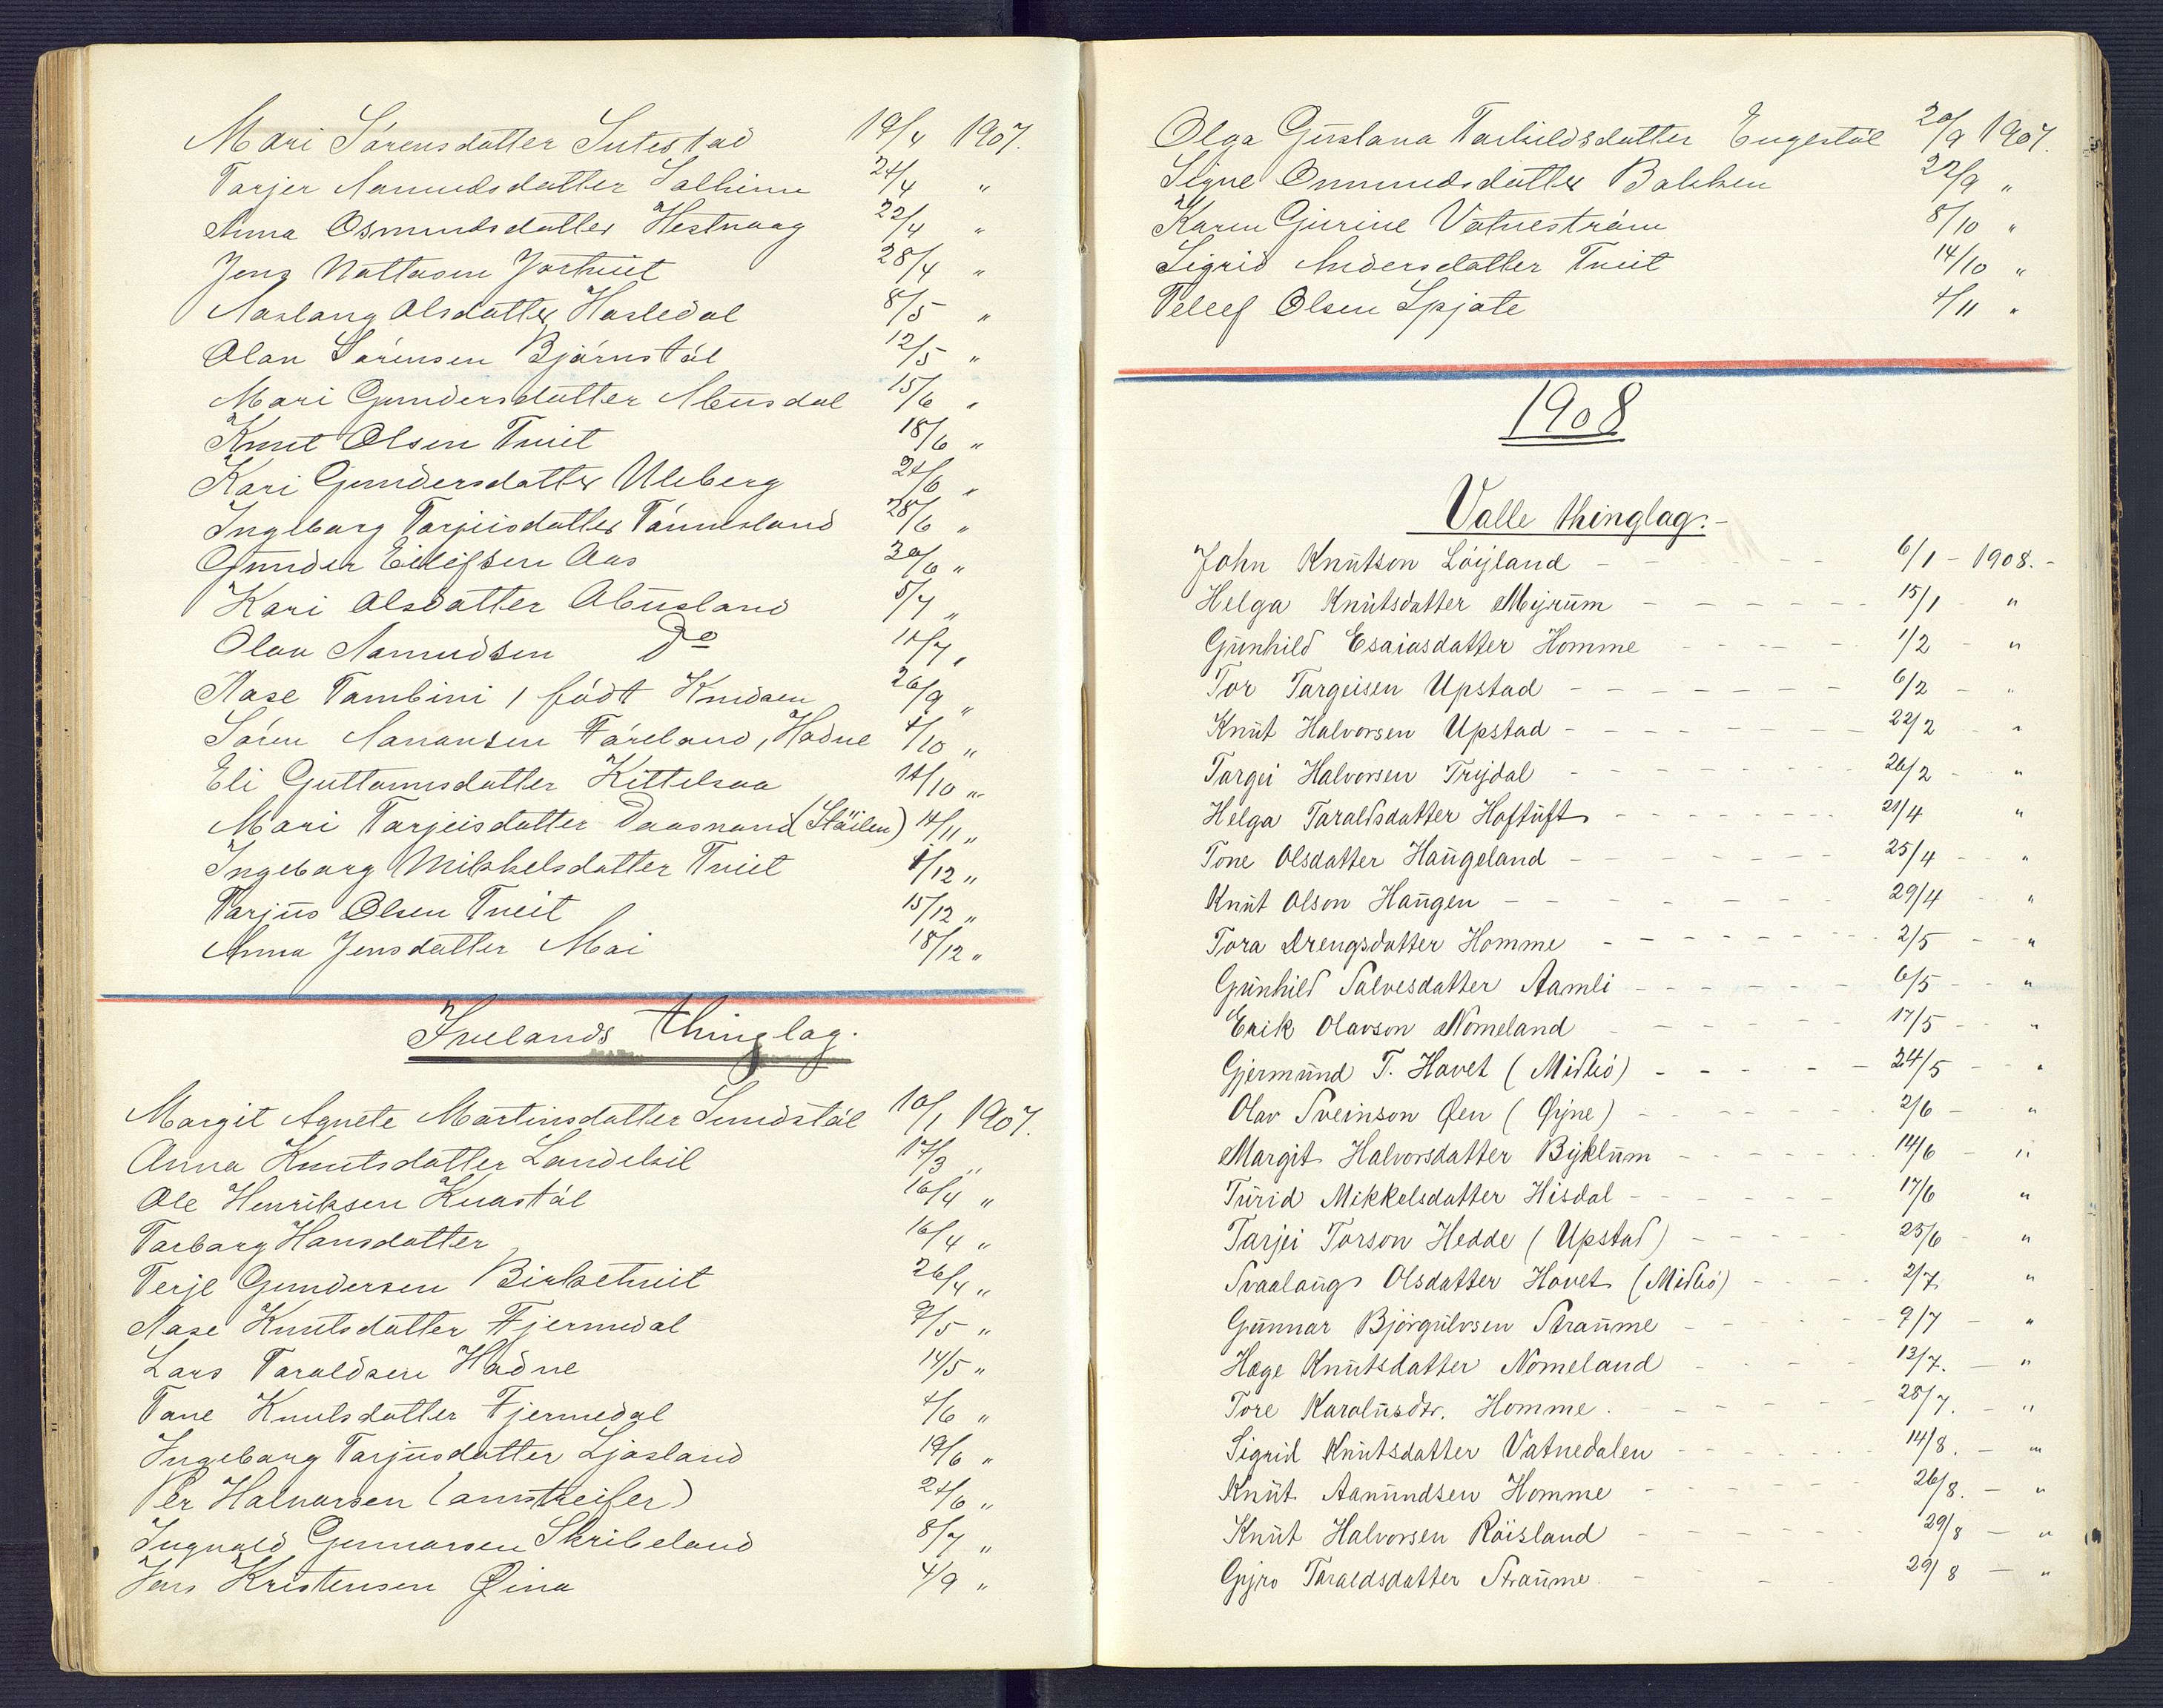 Mari Sørensdatter Sutestad 19/4 1907.
Torjer Aamundsdatter 24/4 "
Anna Osmundsdatter Hestvaag 22/4 "
Jens Mattason Jortveit 28/4 "
Aaslaug Olsdatter Harledal 8/5 "
Olav Sørensen Bjørnstøl 12/5 "
Mari Gundersdatter Abusdal 15/6 "
Knut Olsen Tveit 18/6 "
Kari Gundersdatter Uleberg 24/6 "
Ingeborg Torjeisdatter Tønnesland 28/6 "
Gunder Eilifsen Aas 30/6 "
Kari Olsdatter Abusland 5/7 "
Olav Aamundsen Do 11/7 "
Aase Tambini, født Knudsen 26/9 "
Søren Aanonsen Føreland, Hodne 4/10 "
Eli Guttormsdatter Kittelsaa 14/10 "
Mari Torjeisdatter Daasnand (Støilen) 14/11 "
Ingeborg Mikkelsdatter Tveit 1/12 "
Torjus Olsen Tveit 15/12 "
Anna Jensdatter Moi 18/12 "
Ivelands thinglag.
Margit Agnete Martinsdatter Sundstøl 10/1 1907.
Anna Knutsdatter Landeksil 17/3 "
Ole Henriksen Kvastøl 16/4 "
Torborg Hansdatter 16/4 "
Terje Gundersen Birketveit 26/4 "
Aase Knutsdatter Fjermedal 9/5 "
Lars Taraldsen Hodne 14/5 "
Tone Knutsdatter Fjermedal 4/6 "
Ingeborg Torjusdatter Ljosland 19/6 "
Per Halvorsen (omstreifer) 24/6 "
Ingvald Gunnarsen Skribeland 8/7 "
Jens Kristensen Øina 4/9 "
Olga Gustava Torkildsdatter Engestøl 20/9 1907.
Signe Ommundsdatter Bakken 22/9 "
Karen Gurine Vatnestrøm 8/10 "
Sigrid Andersdatter Tveit 14/10 "
Teleef Olsen Spjote 4/11 "
1908
Valle thinglag.-
John Knutson Løyland - 6/1 - 1908.-
Helga Knutsdatter Myrum - 15/1 "
Gunhild Esaiasdatter Homme - 1/2 - "
Tor Targeisen Upstad - 6/2 - "
Knut Halvorsen Upstad - 22/2 "
Targei Halvorsen Trydal - 26/2 - "
Helga Taraldsdatter Hoftuft - 21/4 "
Tone Olsdatter Haugeland - 25/4 - "
Knut Olson Haugen - 29/4 - "
Tora Drengsdatter Homme - 2/5 - "
Gunhild Salvesdatter Aamli - 6/5 - "
Erik Olavson Nomeland - 17/5 - "
Gjermund T. Hovet (Midbø) - 24/5 - "
Olav Sveinson Øen (Øyne) - 2/6 - "
Margit Halvorsdatter Byklum - 14/6 - "
Turid Mikkelsdatter Hisdal - 17/6 "
Tarjei Torson Hedde (Upstad) - 25/6 - "
Svaalaug Olsdatter Hovet (Midbø) - 2/7 "
Gunnar Bjørgulvsen Straume - 9/7 - "
Hæge Knutsdatter Nomeland - 13/7. - "
Tore Karolusdtr. Homme. - 25/7. - "
Sigrid Knutsdatter Vatnedalen - 14/8. - "
Knut Aanundsen Homme - 26/8. - "
Knut Halvorsen Røisland - 29/8 - "
Gyro Taraldsdatter Straume. - 29/8 - "